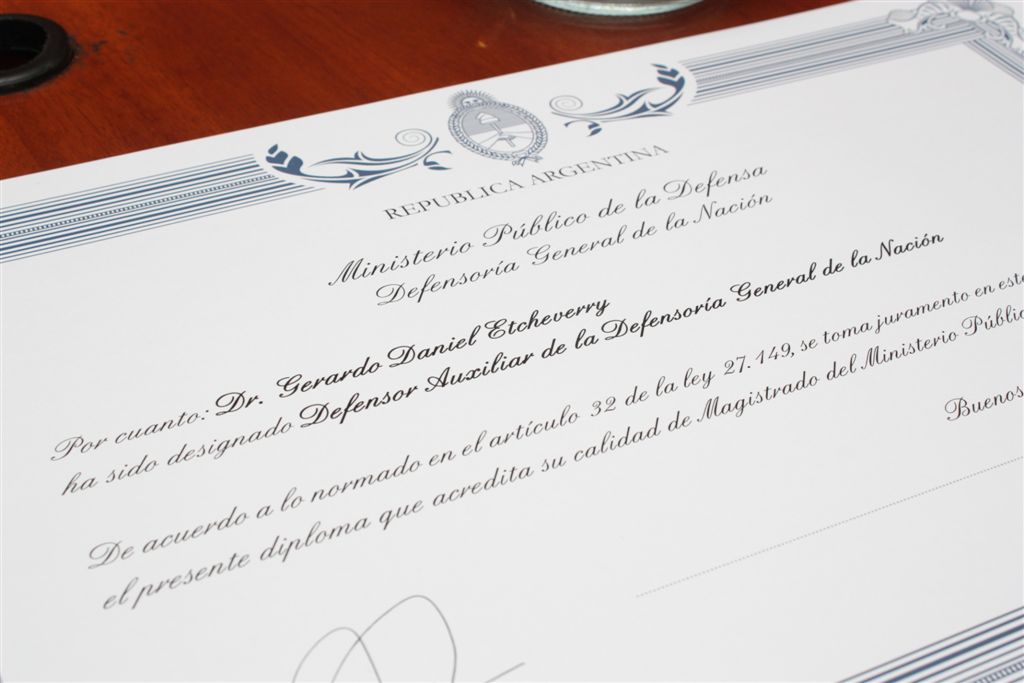 REPUBLICA ARGENTINA
Ministerio Público de la Defensa
Defensoría General de la Nación
Por cuanto: Dr. Gerardo Daniel Etcheverry
ha sido designado Defensor Auxiliar de la Defensoría General de la Nación
De acuerdo a lo normado en el artículo 32 de la ley 27.149, se toma juramento en este
el presente diploma que acredita su calidad de Magistrado del Ministerio Públic
Buenos